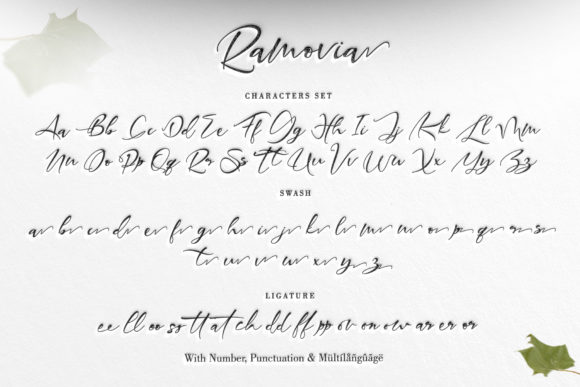 Ramovia
CHARACTERS SET
Aa Bb Cc Dd Ee Ff Gg Hh Ii Jj Kk Ll Mm
Nn Oo Pp Qq Rr Ss Tt Uu Vv Ww Xx Yy Zz
SWASH
a b c d e f g h i j k l m n o p q r s
t u v w x y z
LIGATURE
ee ll oo ss tt at ch dd ff pp ov on ow ar er or
With Number, Punctuation & Mültílåñgûâgë